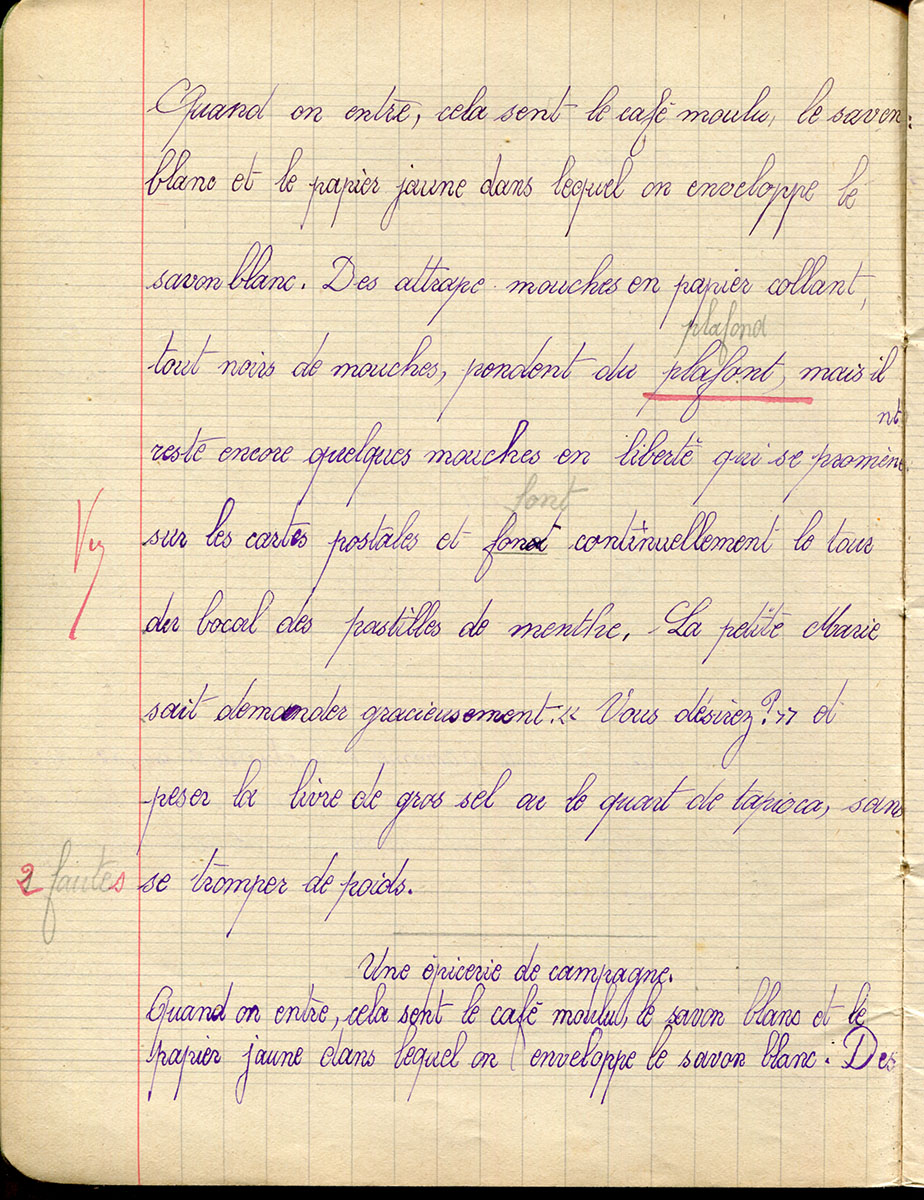 Quand on entre, cela sent le café moulu, le savon
blanc et le papier jaune dans lequel on enveloppe le
savon blanc. Des attrape-mouches en papier collant,
plafond
tout noirs de mouches, pendent du plafont, mais il
nt
reste encore quelques mouches en liberté qui se promène
font
sur les cartes postales et font continuellement le tour
du bocal des pastilles de menthe. La petite Marie
sait demander gracieusement: « Vous désirez? » et
peser la livre de gros sel ou le quart de tapioca, sans
2 fautes
se tromper de poids.
Une épicerie de campagne.
Quand on entre, cela sent le café moulu, le savon blanc et le
papier jaune dans lequel on enveloppe le savon blanc. Des